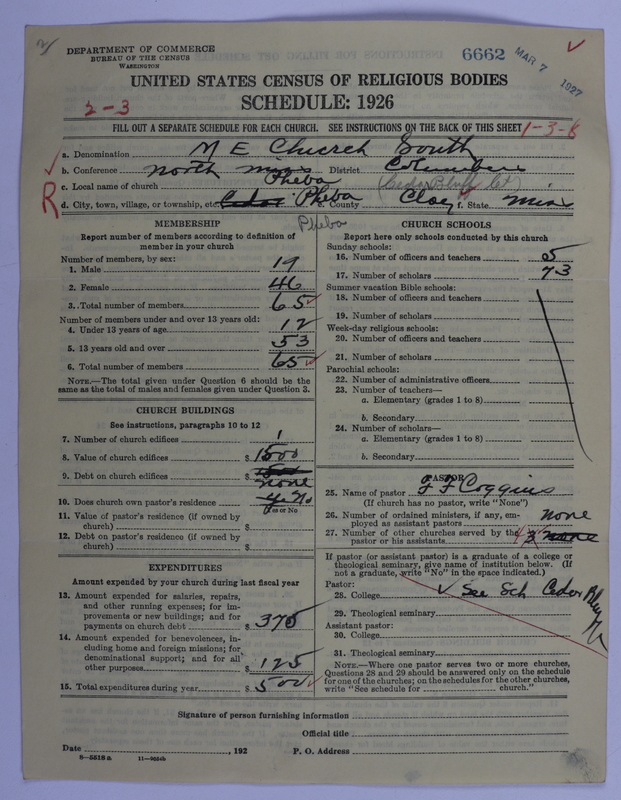 DEPARTMENT OF COMMERCE
BUREAU OF THE CENSUS
WASHINGTON
6662 MAR 7 1927
UNITED STATES CENSUS OF RELIGIOUS BODIES
SCHEDULE: 1926
2-3
FILL OUT A SEPARATE SCHEDULE FOR EACH CHURCH. SEE INSTRUCTIONS ON THE BACK OF THIS SHEET 1-3-8
a. Denomination M E Church South
b. Conference north miss District Columbus
c. Local name of church Pheba (Cedar Bluff Cct)
R d. City, town, village, or township, etc Cedar Pheba e. County Clay f. State Miss
Pheba
MEMBERSHIP
Report number of members according to definition of
member in your church
Number of members, by sex:
1. Male 19
2. Female 46
3. Total number of members 65
Number of members under and over 13 years old:
4. Under 13 years of age 12
5. 13 years old and over 53
6. Total number of members 65
NOTE.—The total given under Question 6 should be the
same as the total of males and females given under Question 3.
CHURCH BUILDINGS
See instructions, paragraphs 10 to 12
7. Number of church edifices 1
8. Value of church edifices $ 1500
9. Debt on church edifices $ none
10. Does church own pastor's residence No
Yes or No
11. Value of pastor's residence (if owned by
church) $
12. Debt on pastor's residence (if owned by
church) $
EXPENDITURES
Amount expended by your church during last fiscal year
13. Amount expended for salaries, repairs,
and other running expenses; for im-
provements or new buildings; and for
payments on church debt $ 375
14. Amount expended for benevolences, in-
cluding home and foreign missions; for
denominational support; and for all
other purposes $ 125
15. Total expenditures during year $ 500
CHURCH SCHOOLS
Report here only schools conducted by this church
Sunday schools:
16. Number of officers and teachers 5
17. Number of scholars 73
Summer vacation Bible schools:
18. Number of officers and teachers
19. Number of scholars
Week-day religious schools:
20. Number of officers and teachers
21. Number of scholars
Parochial schools:
22. Number of administrative officers
23. Number of teachers—
a. Elementary (grades 1 to 8)
b. Secondary
24. Number of scholars—
a. Elementary (grades 1 to 8)
b. Secondary
PASTOR
25. Name of pastor J F Coggins
(If church has no pastor, write "None")
26. Number of ordained ministers, if any, em-
ployed as assistant pastors none
27. Number of other churches served by the
pastor or his assistants 3 none
If pastor (or assistant pastor) is a graduate of a college or
theological seminary, give name of institution below. (If
not a graduate, write "No" in the space indicated.)
Pastor:
28. College See Sch Cedar Bluff
29. Theological seminary
Assistant pastor:
30. College
31. Theological seminary
NOTE.—Where one pastor serves two or more churches,
Questions 28 and 29 should be answered only on the schedule
for one of the churches; on the schedules for the other churches,
write "See schedule for church."
Signature of person furnishing information
Official title
Date , 192 P. O. Address
8—5518 a 11—9634b